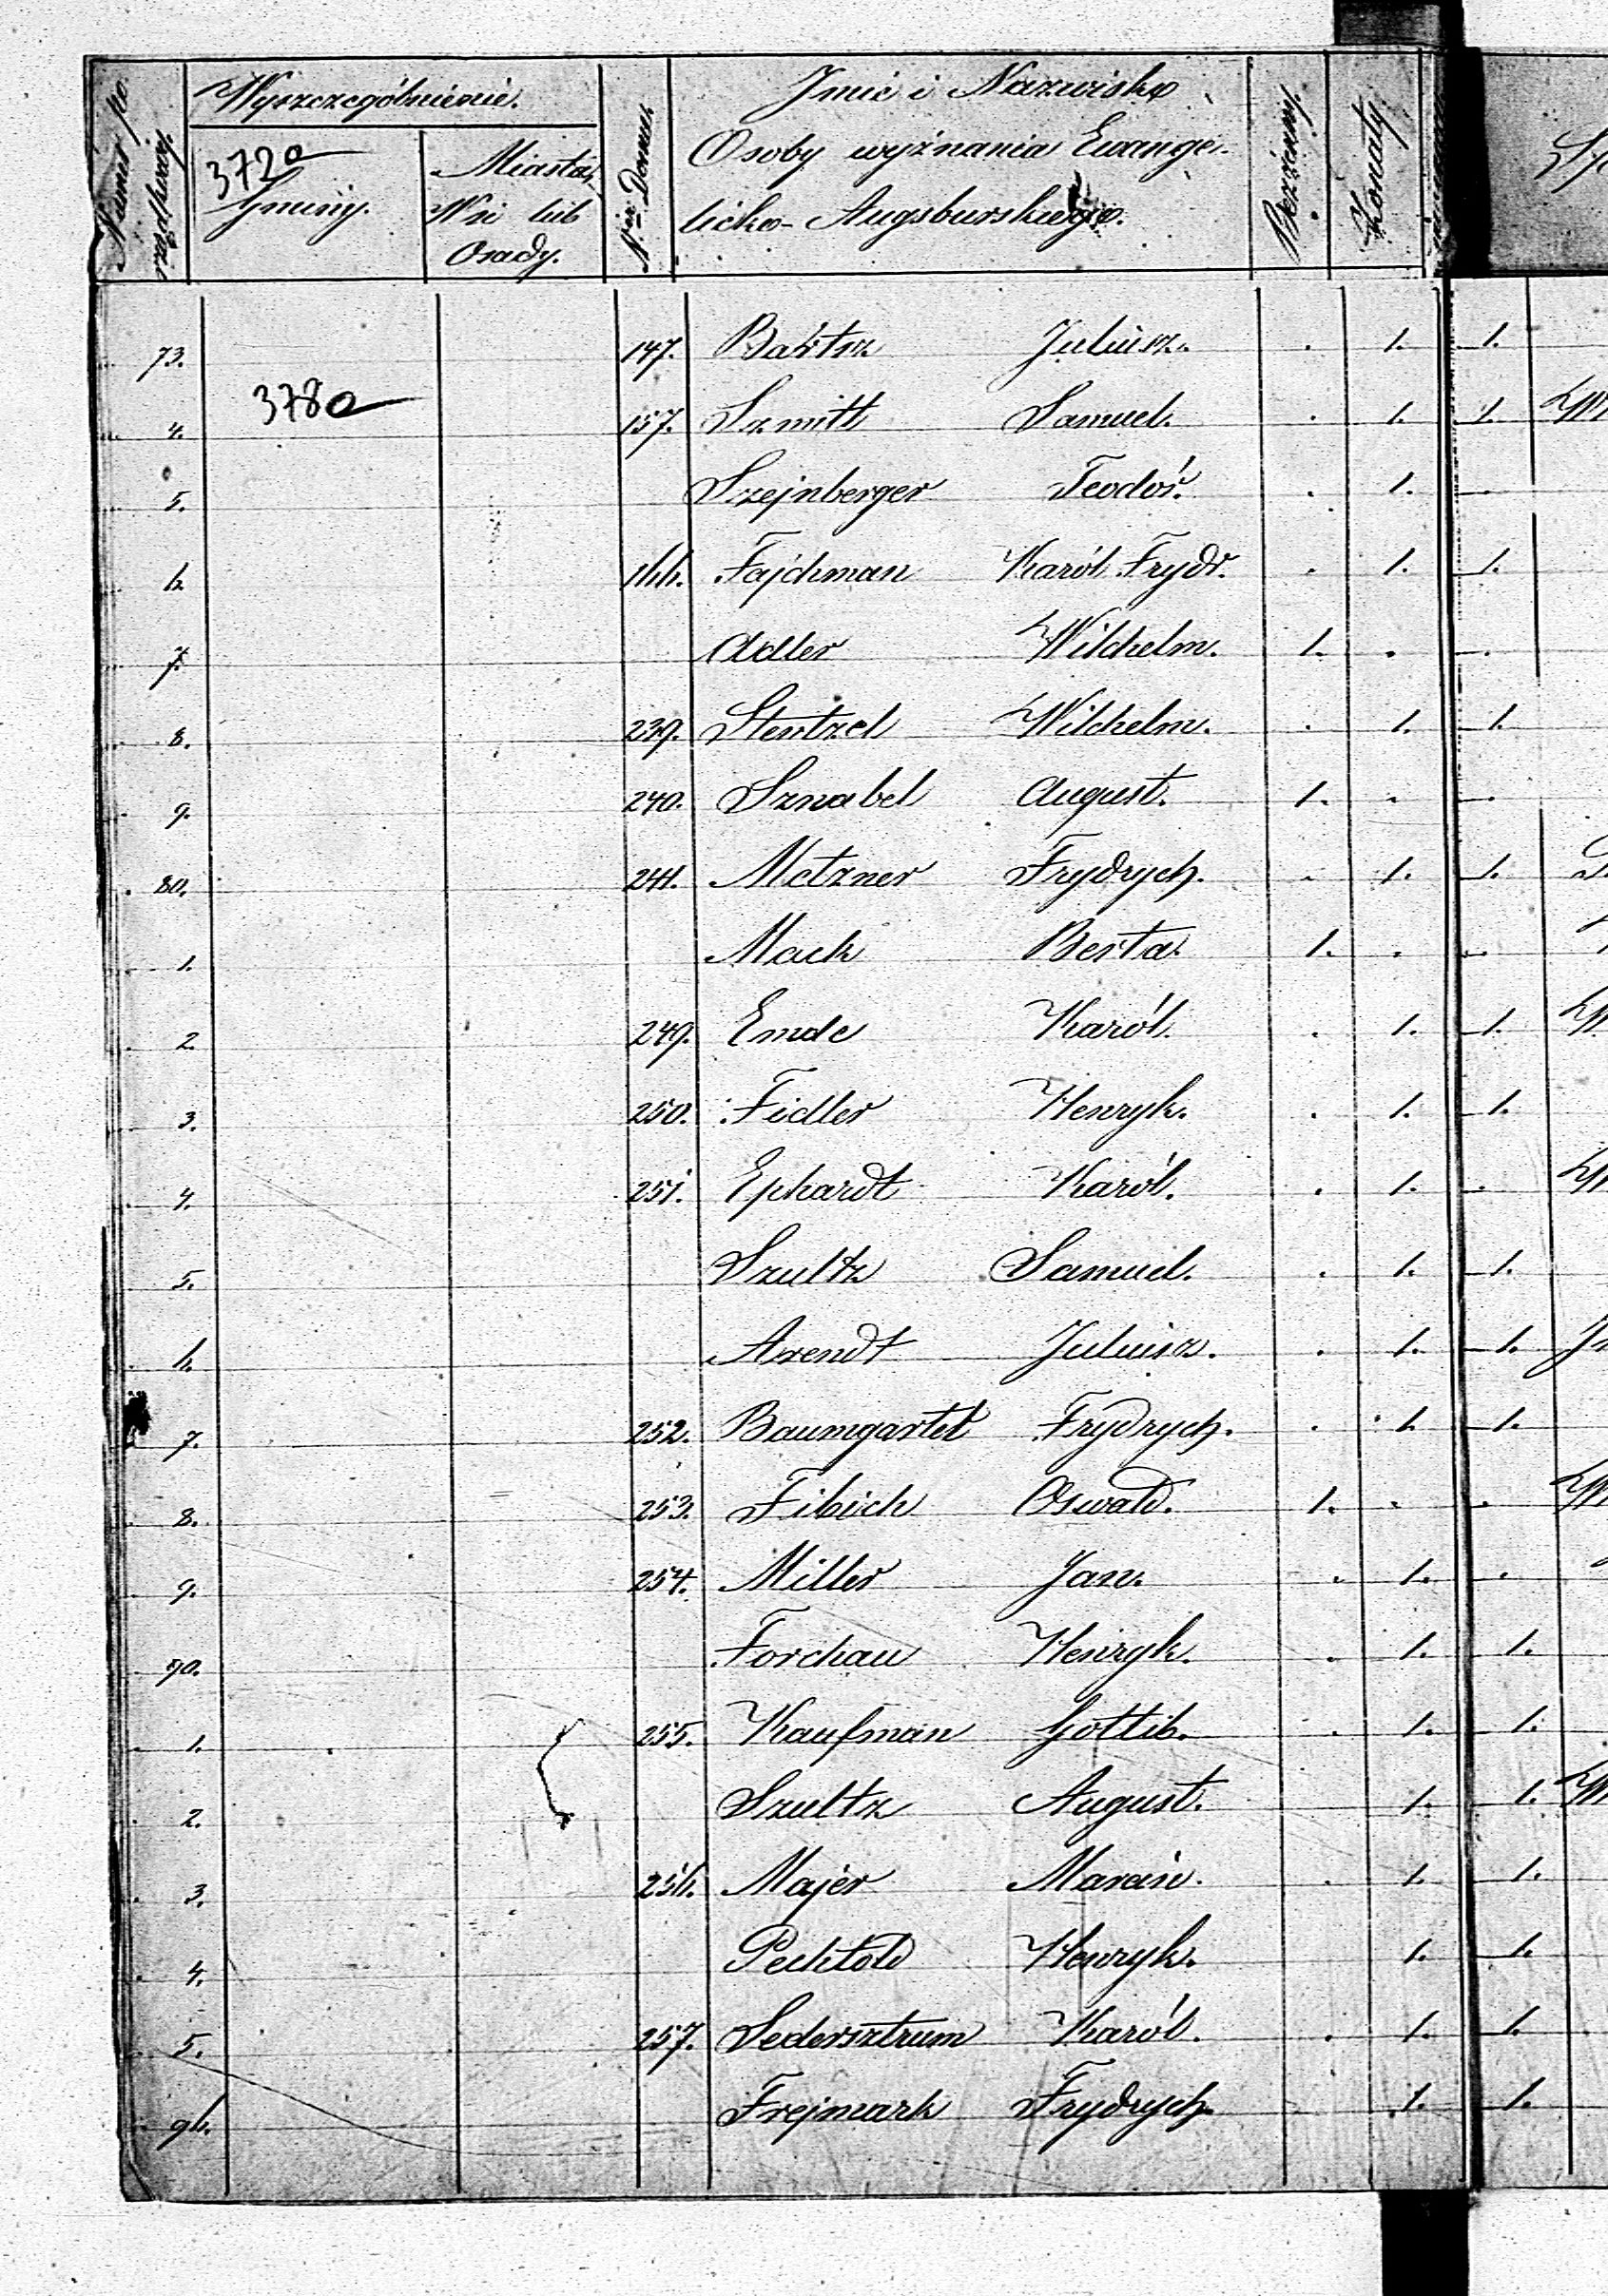 Numer po rządkowy.
Wyszczególnienie.
372a
Gminy.
Miasta,
Wsi lub
Osady.
Nr Domu
Imie i Nazwisko
Osoby wyznania Ewange-
licko-Augsburskiego.
Bezżenny.
Żonaty.
73. 147. Bartsz Juliusz. . 1. 1.
378a
4. 157. Szmitt Samuel. . 1. 1.
5. Szejnberger Teodor. . 1. .
6. 166. Fajchman Karól Frydr. . 1. 1.
7. Adler Wilchelm. 1. . .
8. 239. Stentzel Wilchelm. . 1. 1.
9. 240. Sznabel August. 1. . .
80. 241. Metzner Frydrych. . 1. 1.
1. Mack Berta. 1. . .
2. 249. Emde Karól. . 1. 1.
3. 250. Fidler Henryk. . 1. 1.
4. 251. Ephardt Karól. . 1. .
5. Szultz Samuel. . 1. 1.
6. Arendt Juliusz. . 1. 1.
7. 252. Baumgartel Frydrych. . 1. 1.
8. 253. Fibich Oswald. 1. . .
9. 254. Miller Jan. . 1. .
90. Forchau Henryk. . 1. 1.
1. 255. Kaufman Gottlib. . 1. 1.
2. Szultz August. 1. 1.
3. 256. Majer . 1. 1.
4. Pechtold Henryk. 1. 1.
5. 257. Sedersztrum Karól. . 1. 1.
96. Frejmark Frydrych. 1. 1.